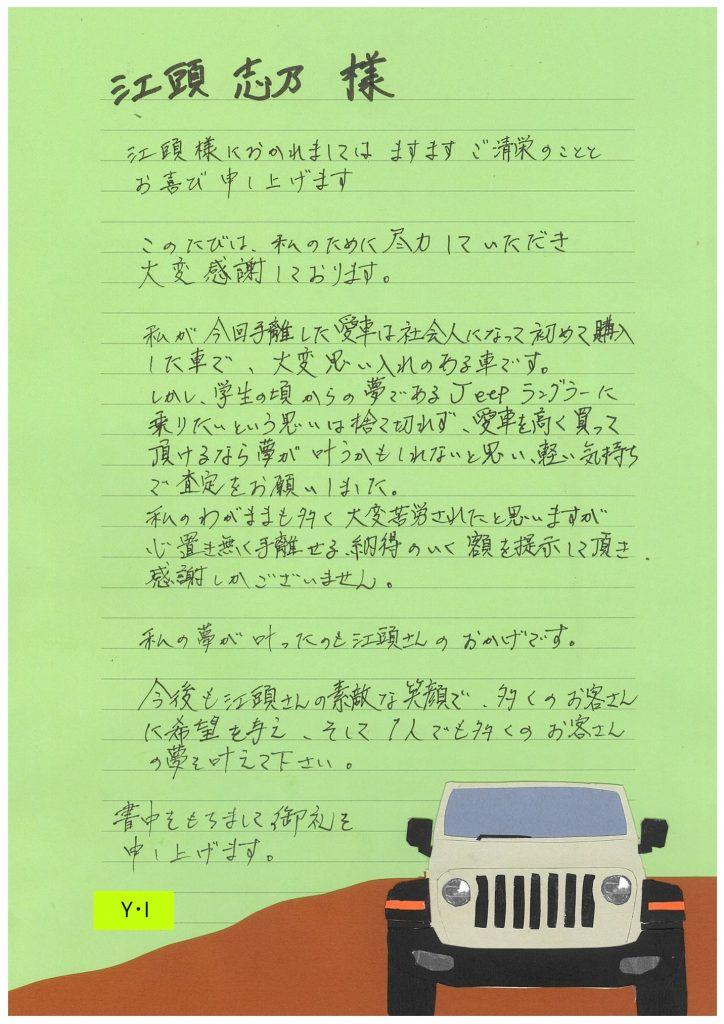 江頭 志乃 様
江頭様におかれましては ますます ご清栄のことと
お喜び申し上げます
このたびは、私のために尽力していただき
大変感謝しております。
私が今回手離した愛車は社会人になって初めて購入
した車で、大変思い入れのある車です。
しかし、学生の頃からの夢であるJeepラングラーに
乗りたいという思いは捨て切れず、愛車を高く買って
頂けるなら夢が叶うかもしれないと思い、軽い気持ち
で査定をお願いしました。
私のわがままも多く大変苦労されたと思いますが
心置き無く手離せる、納得のいく額を提示して頂き、
感謝しかございません。
私の夢が叶ったのも江頭さんのおかげです。
今後も江頭さんの素敵な笑顔で、多くのお客さん
に希望を与え、そして1人でも多くのお客さん
の夢を叶えて下さい。
書中をもちまして御礼を
申し上げます。
Y・I